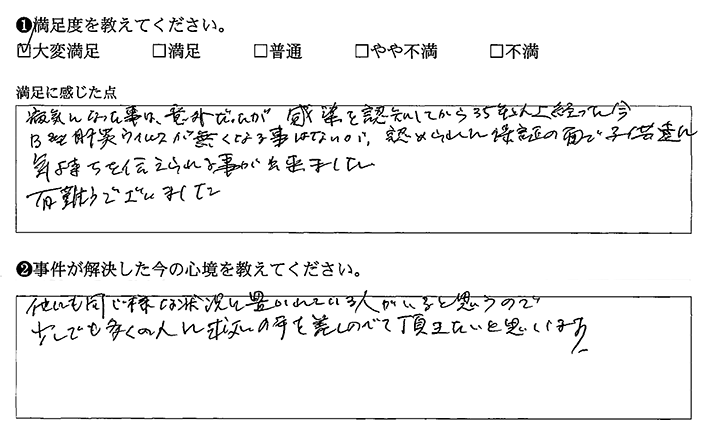 ❶満足度を教えてください。
☑大変満足 □満足 □普通 □やや不満 □不満
満足に感じた点
病気になった事は、意外だったが 感染を認知してから35年以上経った今
B型肝炎ウイルスが無くなる事はないが、認められた保証の面で子供達に
気持ちを伝えられる事が出来ました
有難うございました
❷事件が解決した今の心境を教えてください。
他にも同じ様な状況に置かれている人がいると思うので
少しでも多くの人に救いの手を差しのべて頂きたいと思います